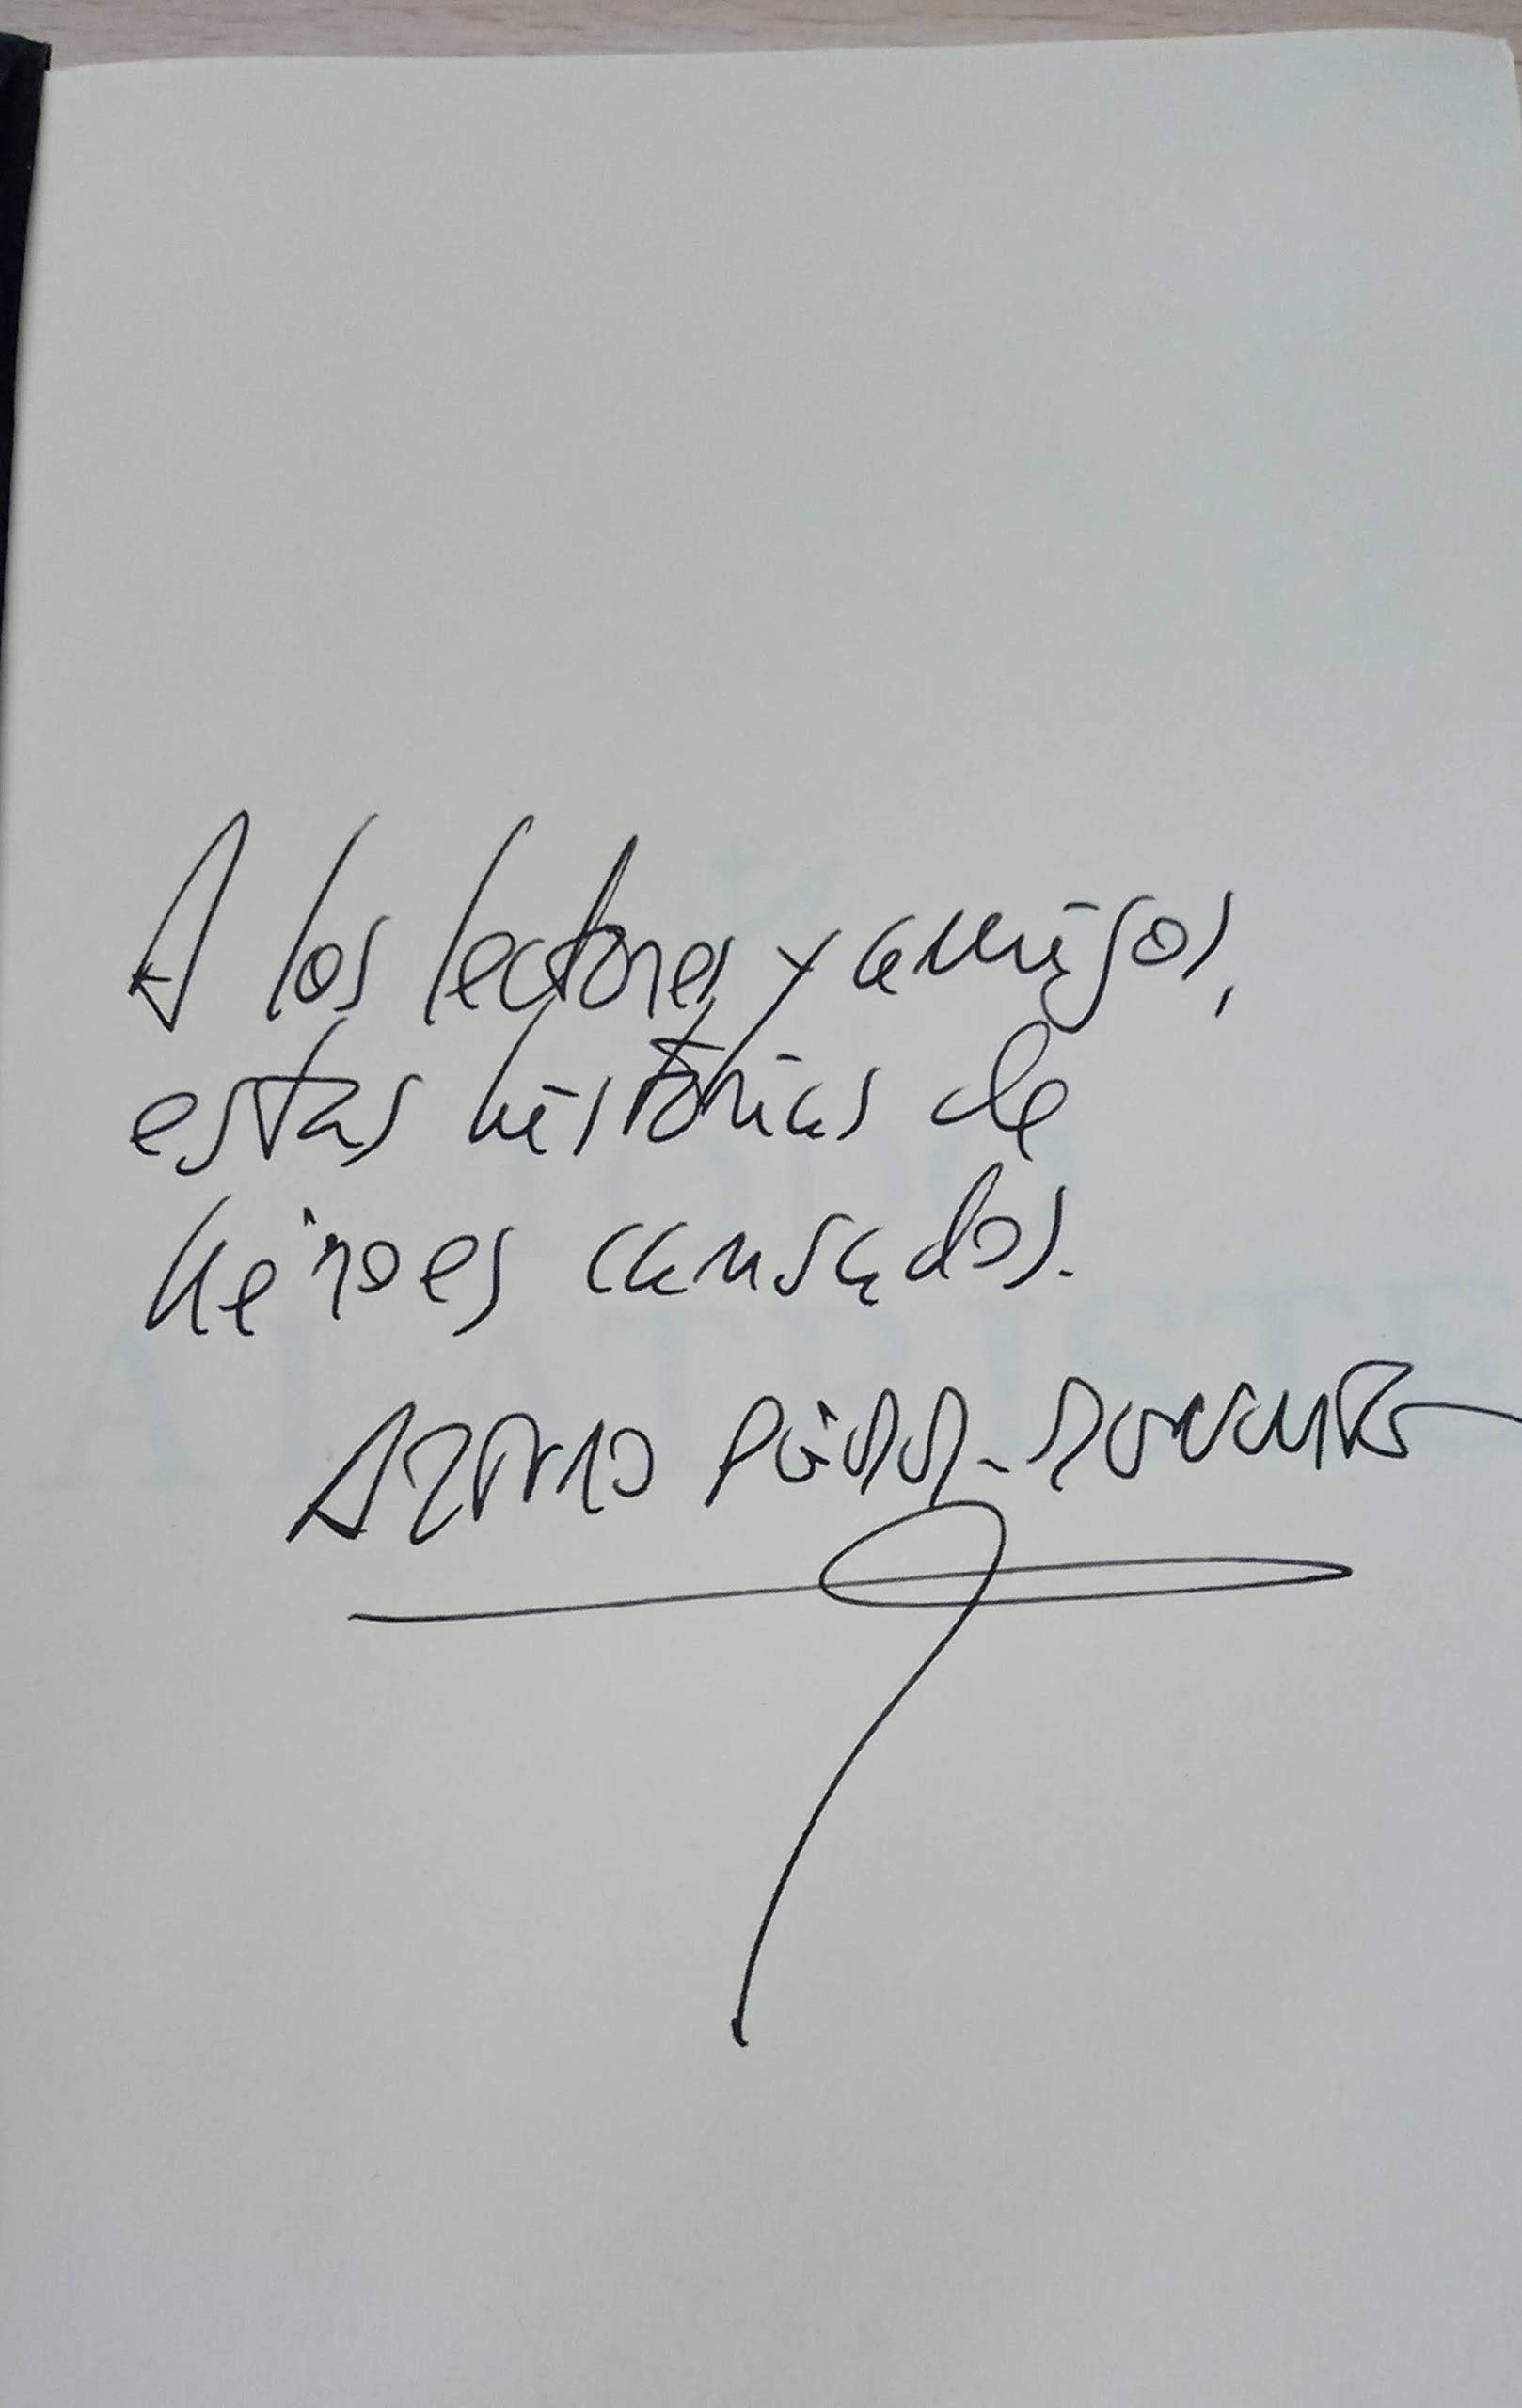 A los lectores y amigos,
estas historias de
héroes cansados.
Arturo Pérez-Reverte